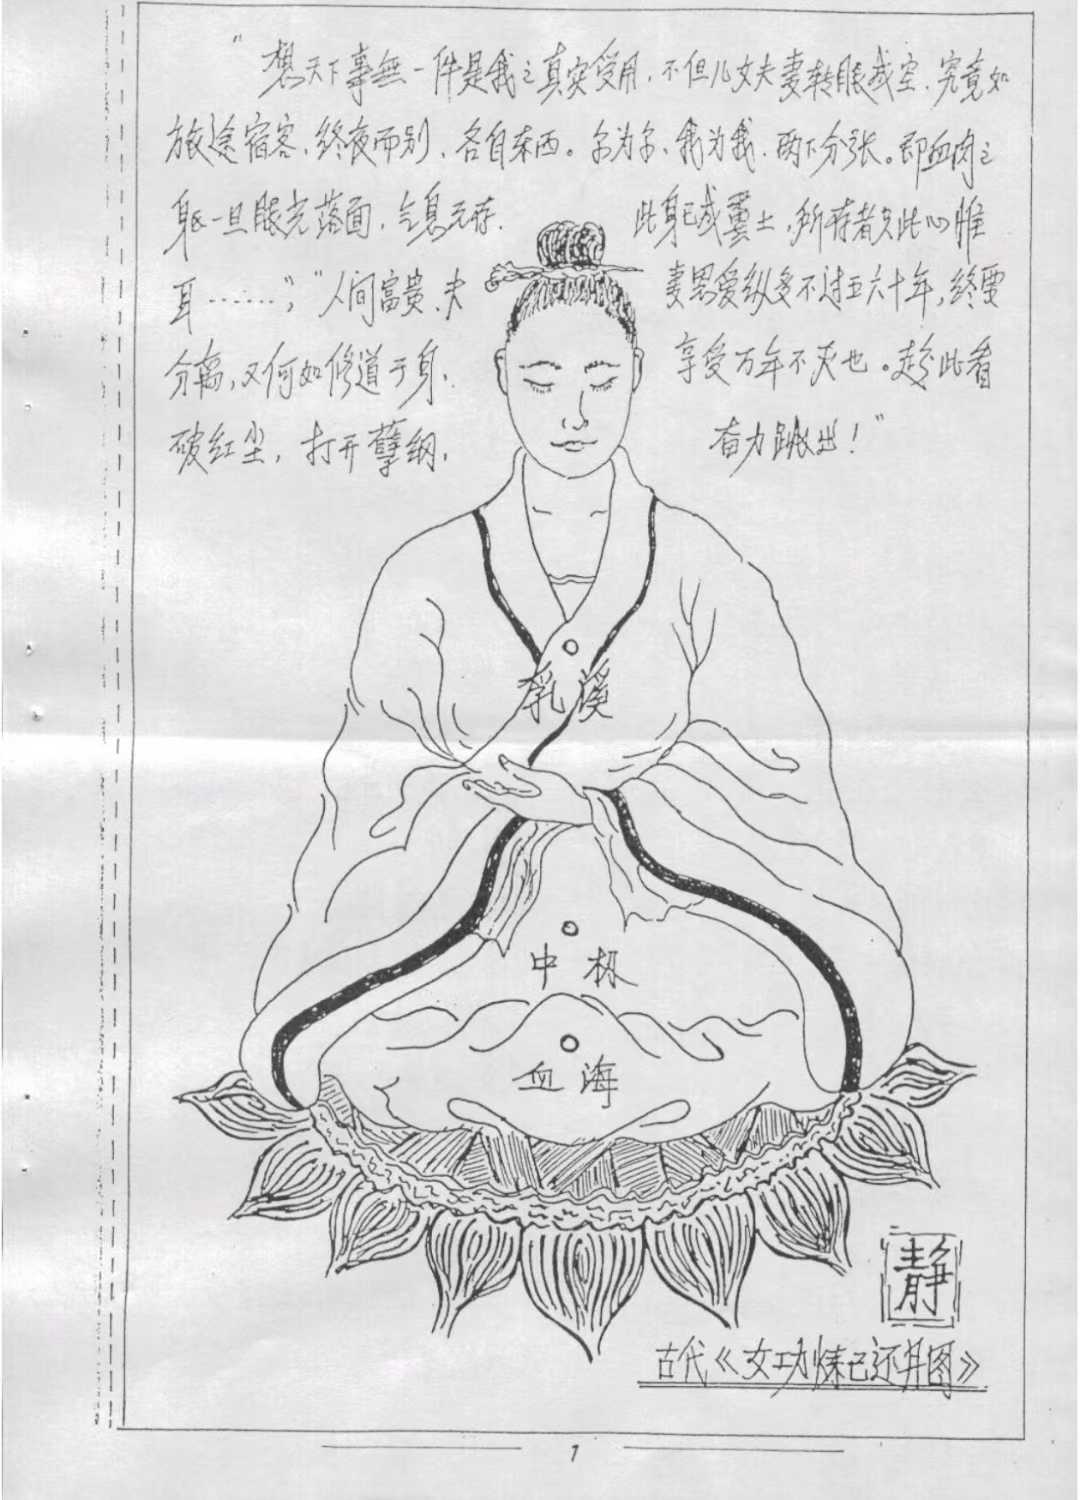 “想天下事無一件是我之真实受用，不但儿女夫妻转眼成空，究竟如
旅途宿客，终夜而别，各自东西。尔为尔，我为我，两下分张。即血肉之
身躯一旦眼光落面，气息无存，此身已成粪土，所存者只此心惟
耳……”，“人间富贵、夫妻恩爱纵多不过五六十年，终要
分离，又何如修道于身，享受万年不灭也。趁此看
破红尘，打开孽纲，奋力跳出！”
乳溪
中极
血海
静
古代《女功炼己还丹图》
1